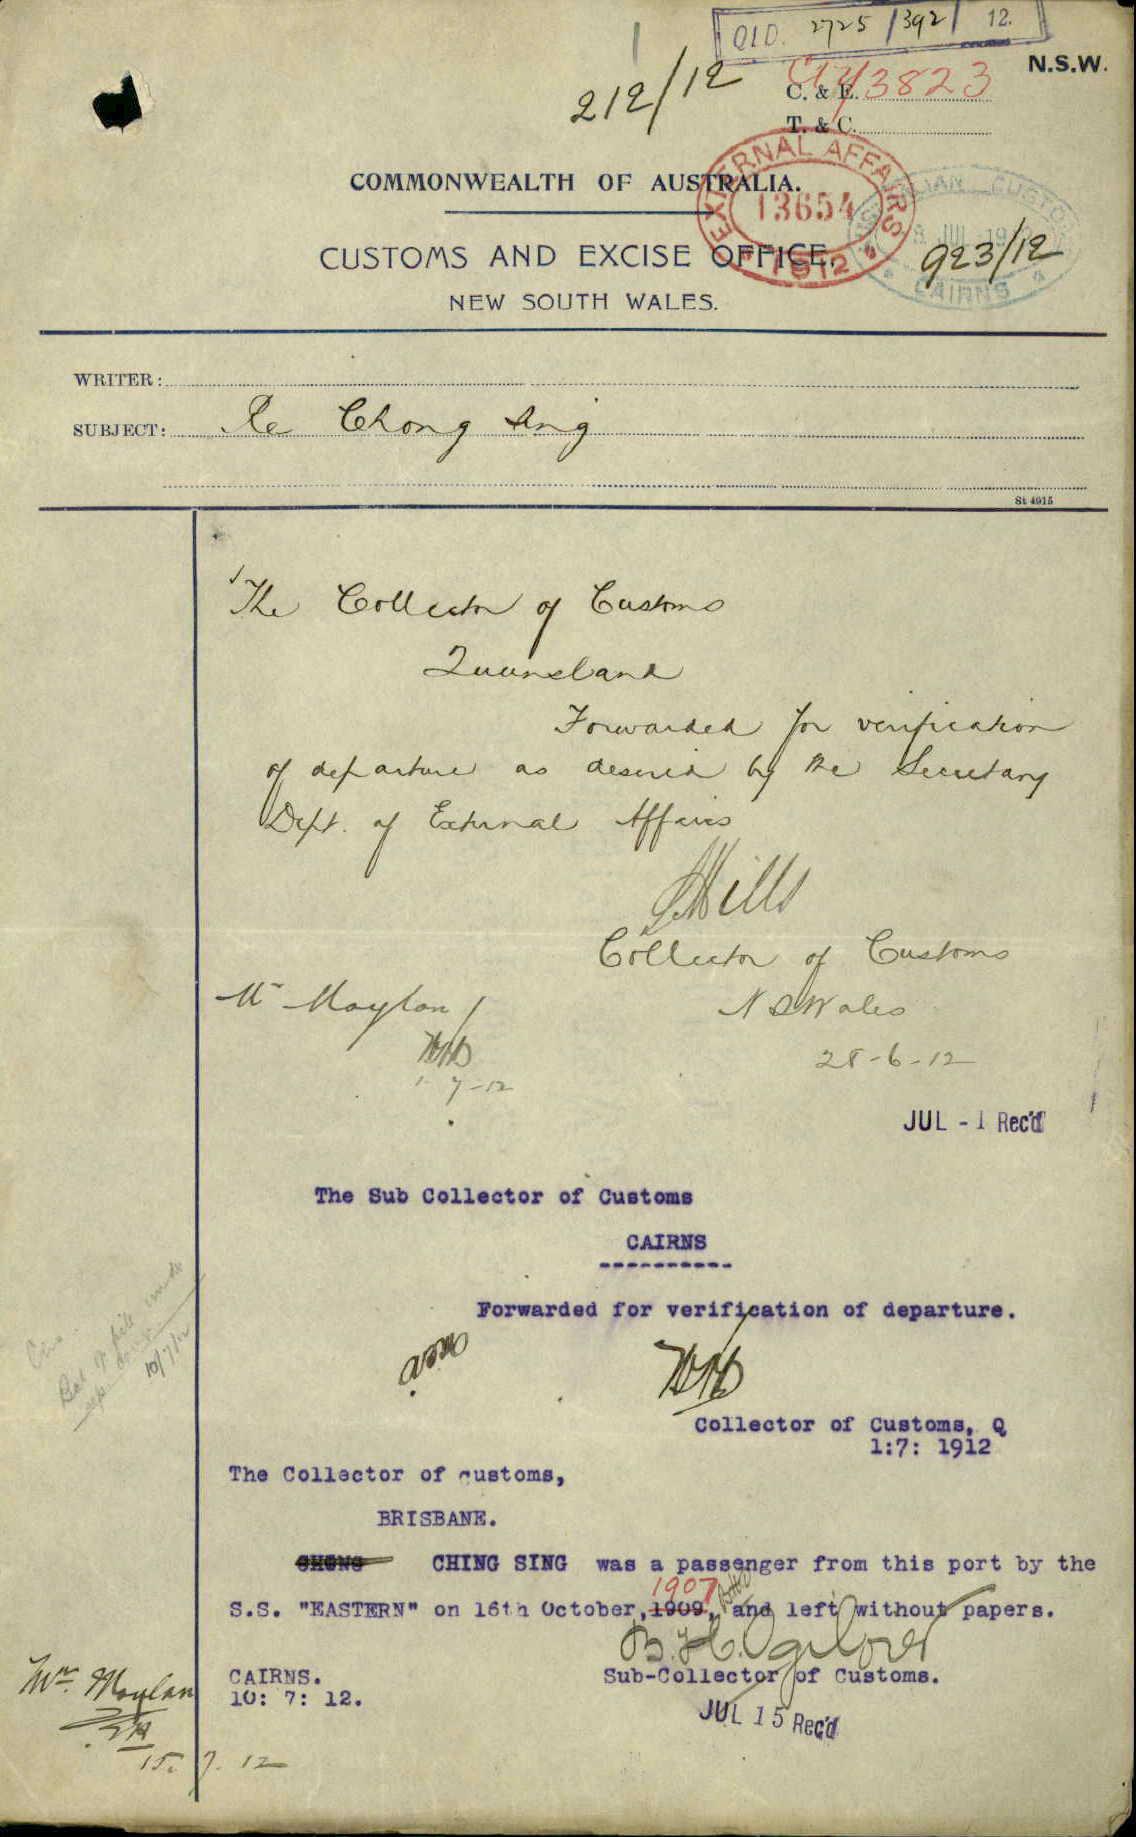 QLD. 2725/392/ 12.
N.S.W.
212/12
C. & E. 12/3823
T. & C.
COMMONWEALTH OF AUSTRALIA.
EXTERNAL AFFAIRS
13654
1912
CUSTOMS
JUL 19
CAIRNS
923/12
CUSTOMS AND EXCISE OFFICE,
NEW SOUTH WALES.
WRITER:
SUBJECT: Re Chong Sing
St 4915
The Collector of Customs
Queensland
Forwarded for verification
of departure as desired by the Secretary
Dept. of External Affairs
Mills
Collector of Customs
N S Wales
28-6-12
Mr Moylan
1-7-12
JUL - 1 Rec'd
The Sub Collector of Customs
CAIRNS
----------
Forwarded for verification of departure.
Collector of Customs, Q
1:7: 1912
10/7/12
The Collector of customs,
BRISBANE.
CHONG CHING SING was a passenger from this port by the
1907
S.S. "EASTERN" on 16th October, 1909, and left without papers.
Sub-Collector of Customs.
CAIRNS.
10: 7: 12.
JUL 15 Rec'd
Mr. Moylan
15. 7. 12